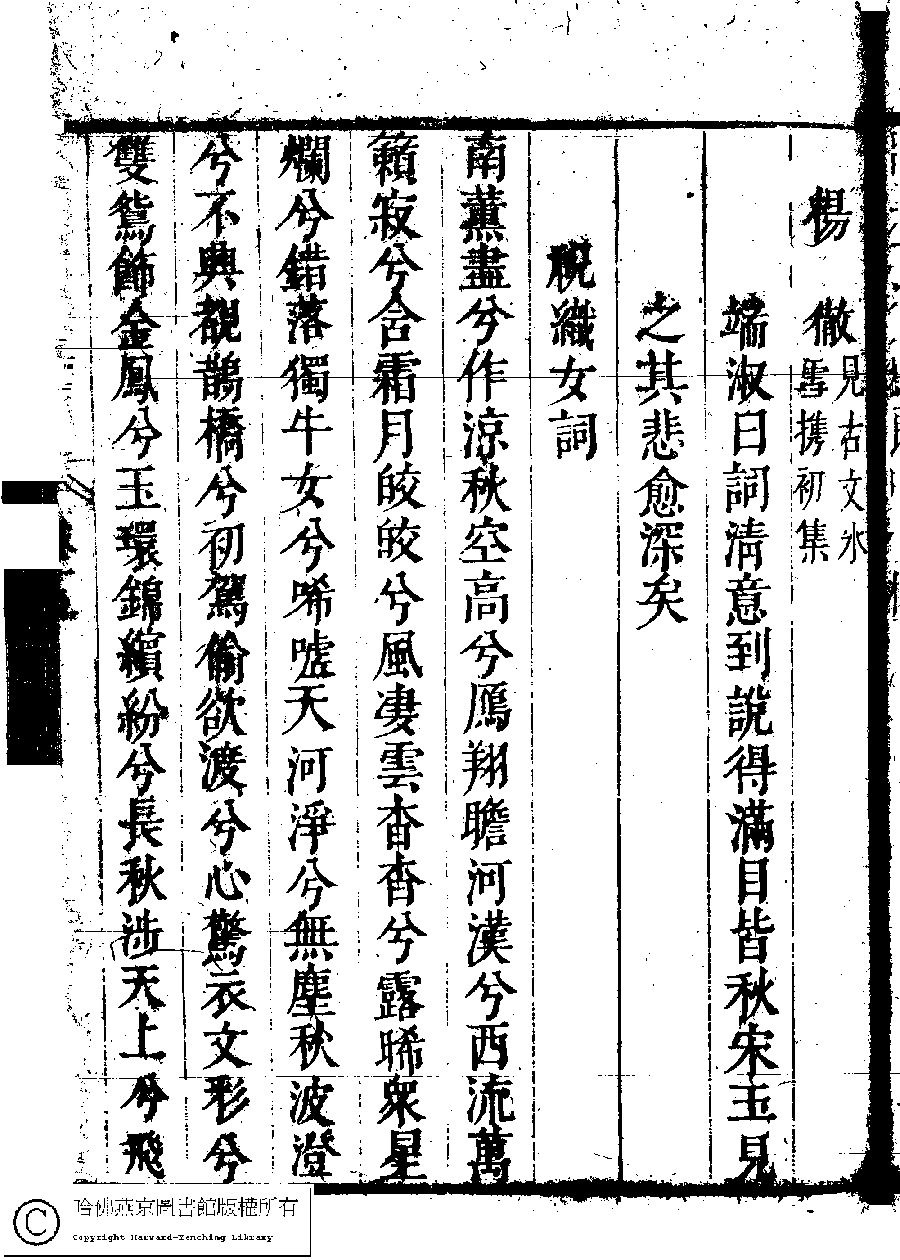 楊徹見古文氷
雪携初集
端淑曰詞清意到說得滿目皆秋宋玉見
之其悲愈深矣
祝織女詞
南薰盡兮作涼秋空高兮鴈翔瞻河漢兮西流萬
籟寂兮含霜月皎皎兮風凄雲杳杳兮露晞衆星
爛兮錯落獨牛女兮唏噓天河淨兮無塵秋波澄
兮不興覩鵲橋兮初駕偷欲渡兮心驚衣文彩兮
雙鴛飾金鳳兮玉環錦繽紛兮長秋涉天上兮飛
哈佛燕京圖書館版權所有
Copyright Harvard-Yenching Library